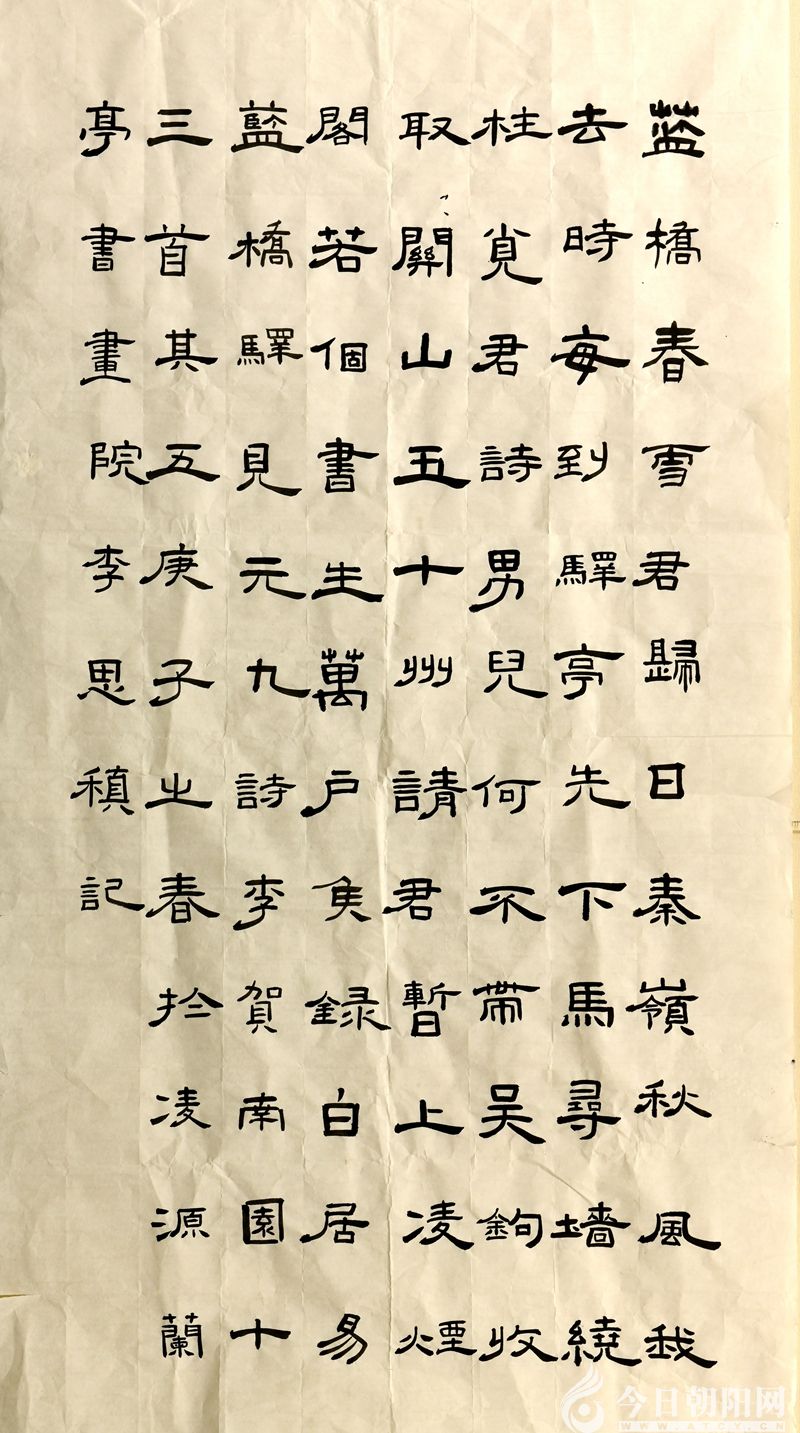 藍橋春雪君歸日秦嶺秋風我
去時每到驛亭先下馬尋墙繞
柱覓君詩男兒何不帶吴鉤收
取關山五十州請君暫上凌煙
閣若個書生萬户侯録白居易
藍橋驛見元九詩李賀南園十
三首其五庚子之春於凌源蘭
亭書畫院李思稹記
今日朝阳网
WWW.ATCY.CN